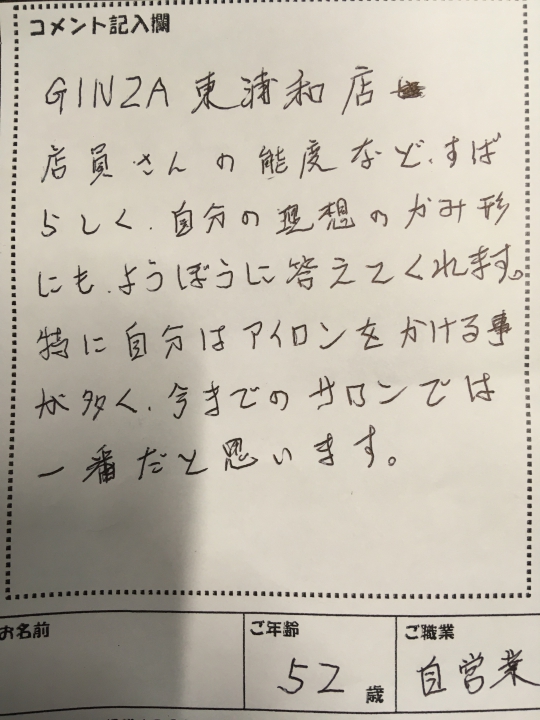 コメント記入欄
GINZA 東浦和店
店員さんの態度など、すば
らしく、自分の理想のかみ形
にも、ようぼうに答えてくれます。
特に自分はアイロンをかける事
が多く、今までのサロンでは
一番だと思います。
お名前
ご年齢
52 歳
ご職業
自営業